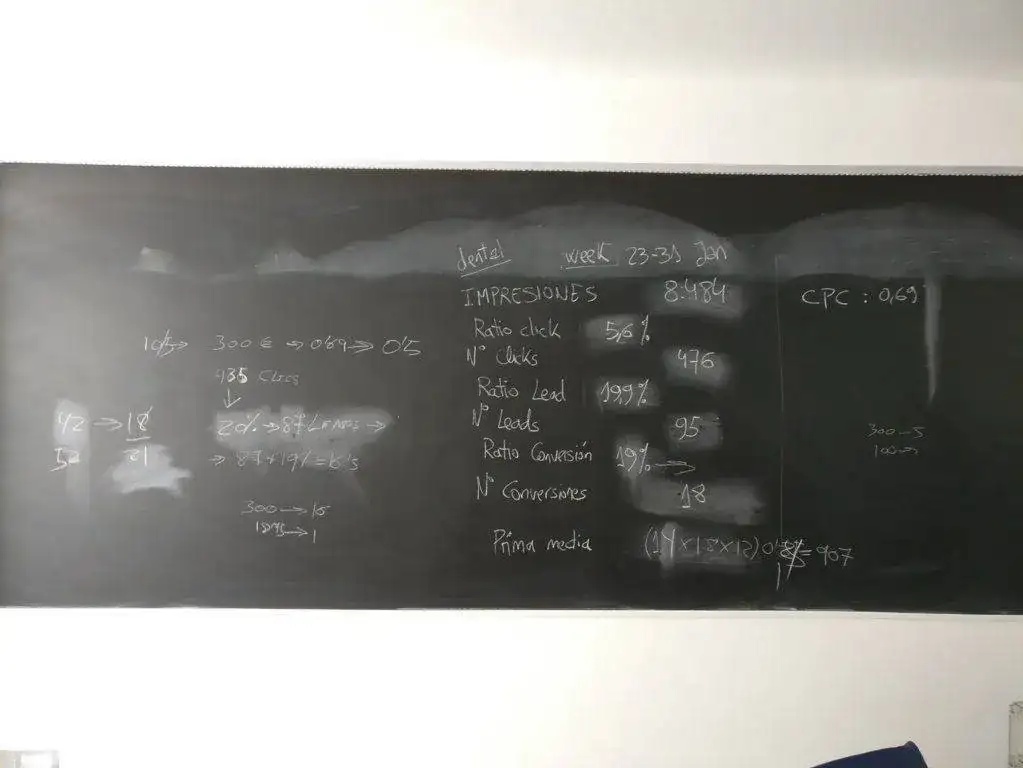 dental week 23-31 Jan
IMPRESIONES 8.484
Ratio click 5,6%
Nº Clicks 476
Ratio Lead 19,9%
Nº Leads 95
Ratio Conversión 19% →
Nº Conversiones 18
Prima media (14×1,8×12) = 907
CPC : 0,69
300€ → 0'69 → 0'5
435 Clics
↓
20% → 87 Leads →
→ 87 + 19% = 16'5
42 → 18
21
300 → 16
→ 1
300 → 5
100 →